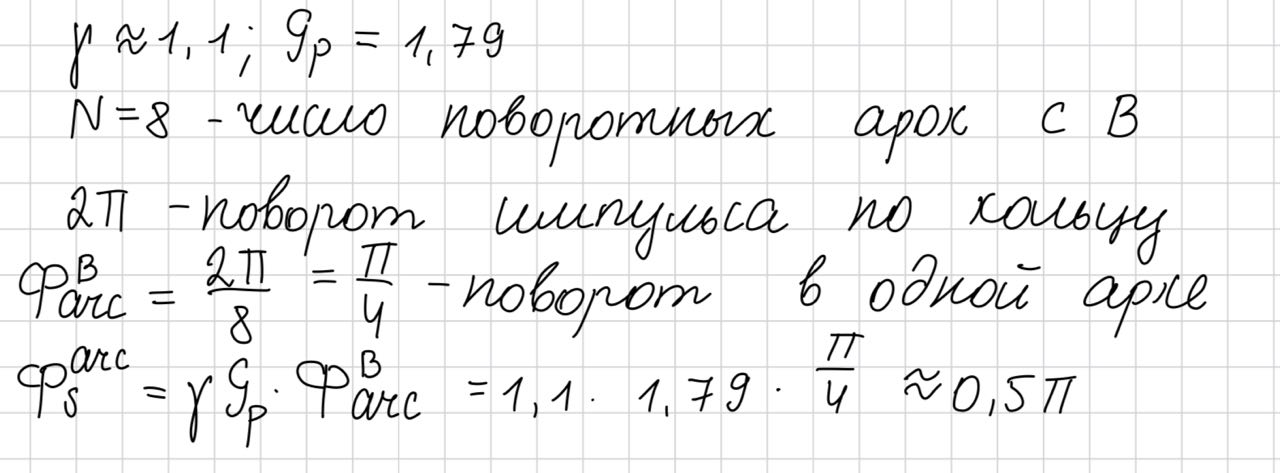 γ ≈ 1,1; Gp = 1,79
N = 8 - число поворотных арок с В
2π - поворот импульса по кольцу
Φ_arc^B = 2π/8 = π/4 - поворот в одной арке
Φ_s^arc = γGp · Φ_arc^B = 1,1 · 1,79 · π/4 ≈ 0,5π